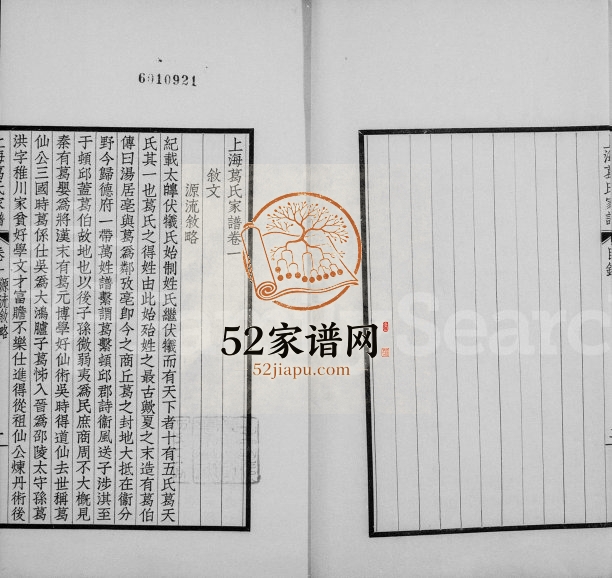 6010921
上海葛氏家譜
目錄
上海葛氏家譜卷一
敘文
源流敘略
紀載太皞伏犧氏始制姓氏繼伏犧而有天下者十有五氏葛天
氏其一也葛氏之得姓由此始殆姓之最古歟夏之末造有葛伯
傳曰湯居亳與葛為鄰攷亳卽今之商丘葛之封地大抵在衞分
野今歸德府一帶萬姓譜繫謂葛繫頓邱郡詩衞風送子涉淇至
于頓邱蓋葛伯故地也以後子孫微弱夷為民庶商周不大概見
秦有葛嬰為將漢末有葛元博學好仙術吳時得道仙去世稱葛
仙公三國時葛係仕吳為大鴻臚子葛悌入晉為邵陵太守孫葛
洪字稚川家貧好學文才富膽不樂仕進得從祖仙公煉丹術後
上海葛氏家譜
卷一
源流敘略
52家谱网
52jiapu.com